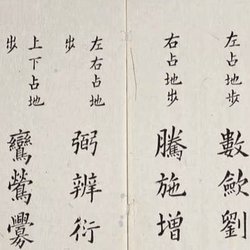 左占地步
數斂劉
右占地步
騰施增
左右占地步
弼辨衍
上下占地步
鸞鶯㸑